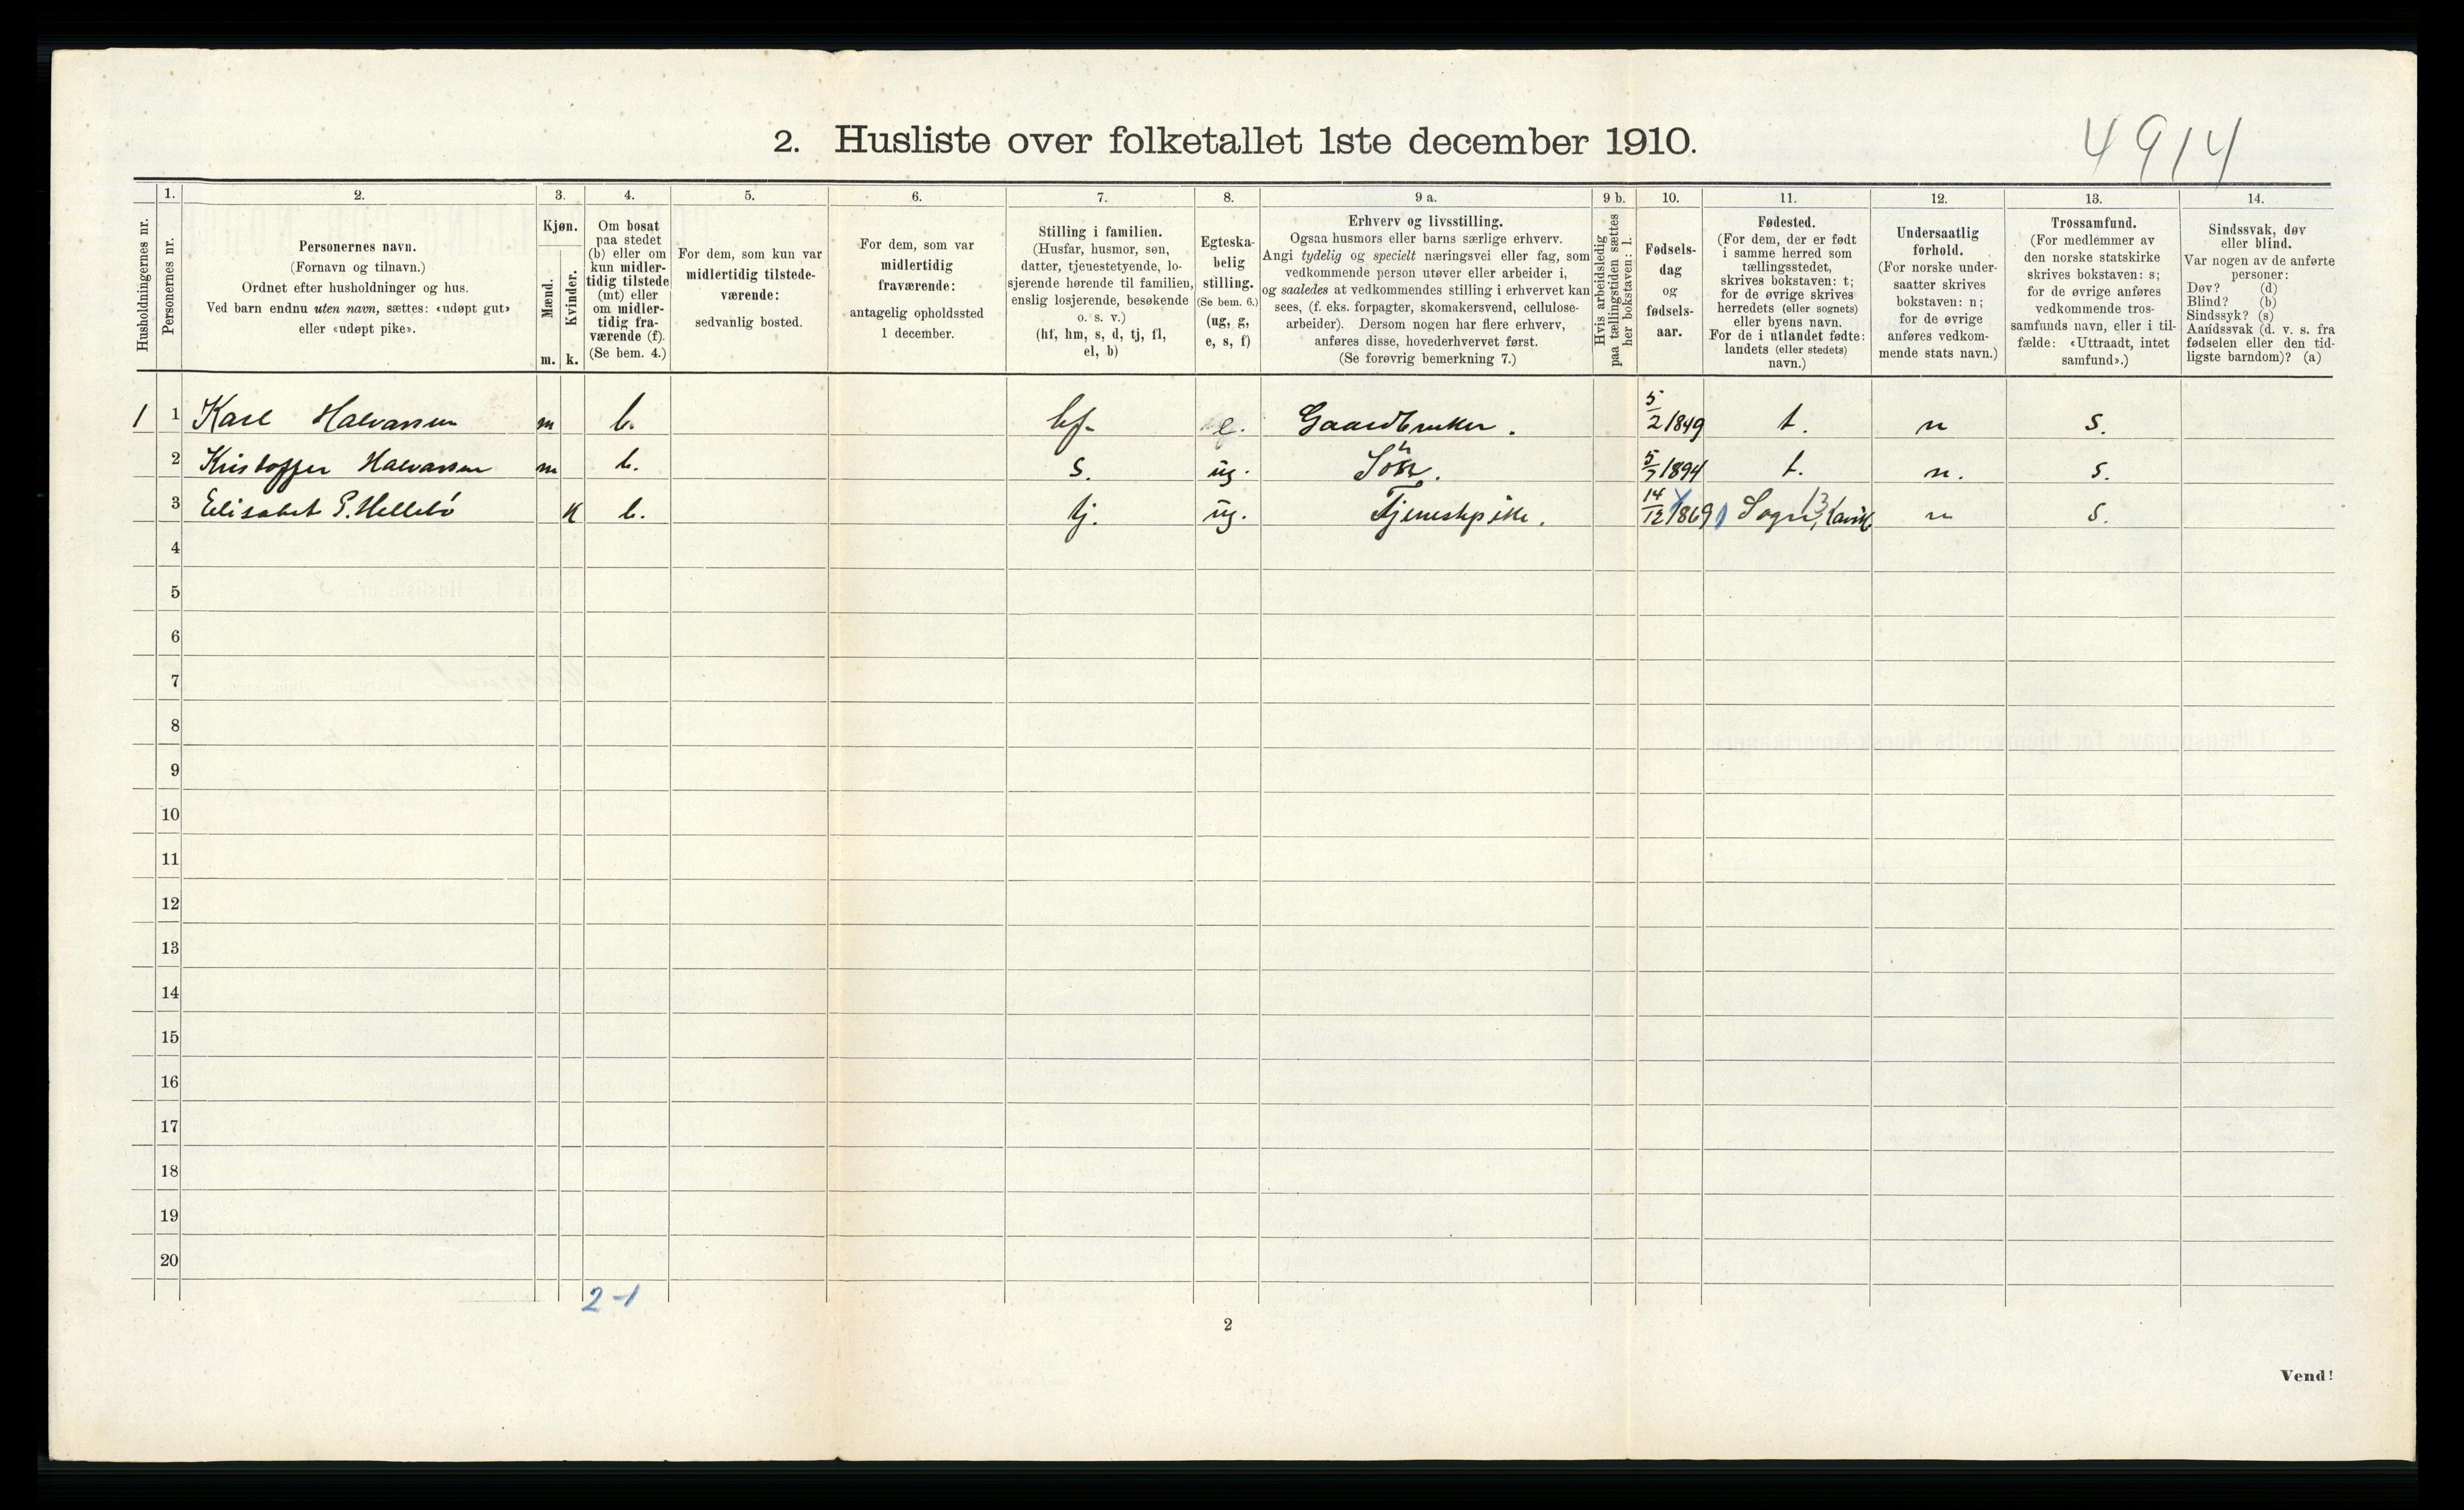 2. Husliste over folketallet 1ste december 1910.
4914
Husholdningernes nr.
1.
Personernes nr.
2.
Personernes navn.
(Fornavn og tilnavn.)
Ordnet efter husholdninger og hus.
Ved barn endnu uten navn, sættes: «udøpt gut»
eller «udøpt pike».
3.
Kjøn.
Mænd.
Kvinder.
m. k.
4.
Om bosat
paa stedet
(b) eller om
kun midler-
tidig tilstede
(mt) eller
om midler-
tidig fra-
værende (f).
(Se bem. 4.)
5.
For dem, som kun var
midlertidig tilstede-
værende:
sedvanlig bosted.
6.
For dem, som var
midlertidig
fraværende:
antagelig opholdssted
1 december.
7.
Stilling i familien.
(Husfar, husmor, søn,
datter, tjenestetyende, lo-
sjerende hørende til familien,
enslig losjerende, besøkende
o. s. v.)
(hf, hm, s, d, tj, fl,
el, b)
8.
Egteska-
belig
stilling.
(Se bem. 6.)
(ug, g,
e, s, f)
9 a.
Erhverv og livsstilling.
Ogsaa husmors eller barns særlige erhverv.
Angi tydelig og specielt næringsvei eller fag, som
vedkommende person utøver eller arbeider i,
og saaledes at vedkommendes stilling i erhvervet kan
sees, (f. eks. forpagter, skomakersvend, cellulose-
arbeider). Dersom nogen har flere erhverv,
anføres disse, hovederhvervet først.
(Se forøvrig bemerkning 7.)
9 b.
Hvis arbeidsledig
paa tællingstiden sættes
her bokstaven: l.
10.
Fødsels-
dag
og
fødsels-
aar.
11.
Fødested.
(For dem, der er født
i samme herred som
tællingsstedet,
skrives bokstaven: t;
for de øvrige skrives
herredets (eller sognets)
eller byens navn.
For de i utlandet fødte:
landets (eller stedets)
navn.)
12.
Undersaatlig
forhold.
(For norske under-
saatter skrives
bokstaven: n;
for de øvrige
anføres vedkom-
mende stats navn.)
13.
Trossamfund.
(For medlemmer av
den norske statskirke
skrives bokstaven: s;
for de øvrige anføres
vedkommende tros-
samfunds navn, eller i til-
fælde: «Uttraadt, intet
samfund».)
14.
Sindssvak, døv
eller blind.
Var nogen av de anførte
personer:
Døv? (d)
Blind? (b)
Sindssyk? (s)
Aandssvak (d. v. s. fra
fødselen eller den tid-
ligste barndom)? (a)
1 1 Karl Halvarsen m b. hf. e. Gaardbruker. 5/2 1849 t. n s.
2 Kristoffer Halvarsen m b. s. ug. Søn. 5/7 1894 t. n. s.
3 Elisabet P. Hellebö k b. tj. ug. Tjenestepike. 14/12 1869 Sogn, n s.
4
5
6
7
8
9
10
11
12
13
14
15
16
17
18
19
20
2-1
2
Vend!